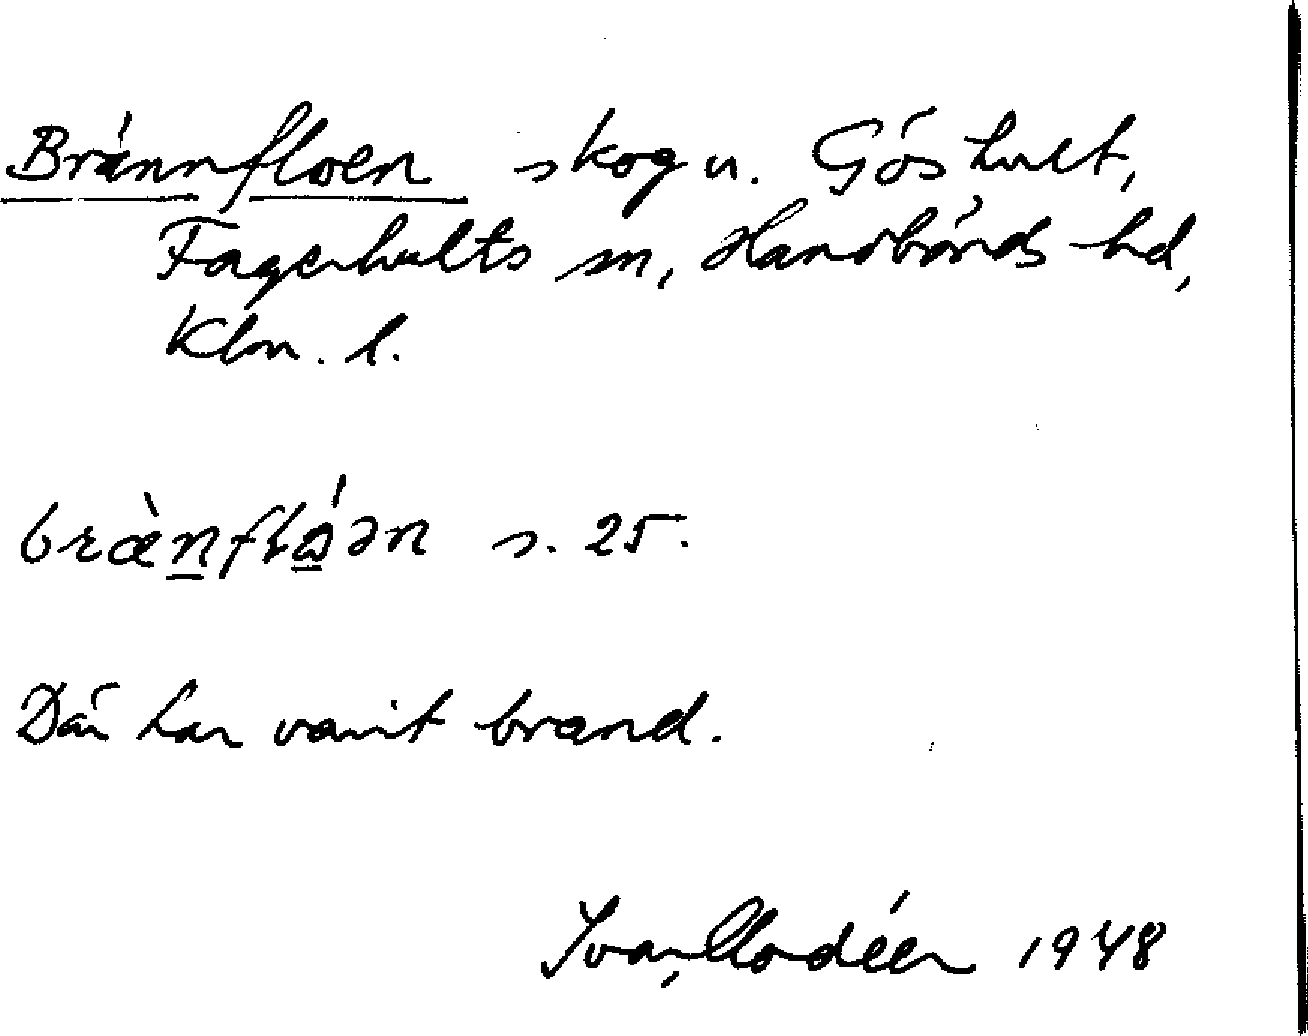 Brännfloen skog u. Göshult,
Fagerhults sn, Handbörds hd,
Klm. l.
brǽn̠flώ̠ən s. 25.
Där har varit brand.
Ivar Modéer 1948